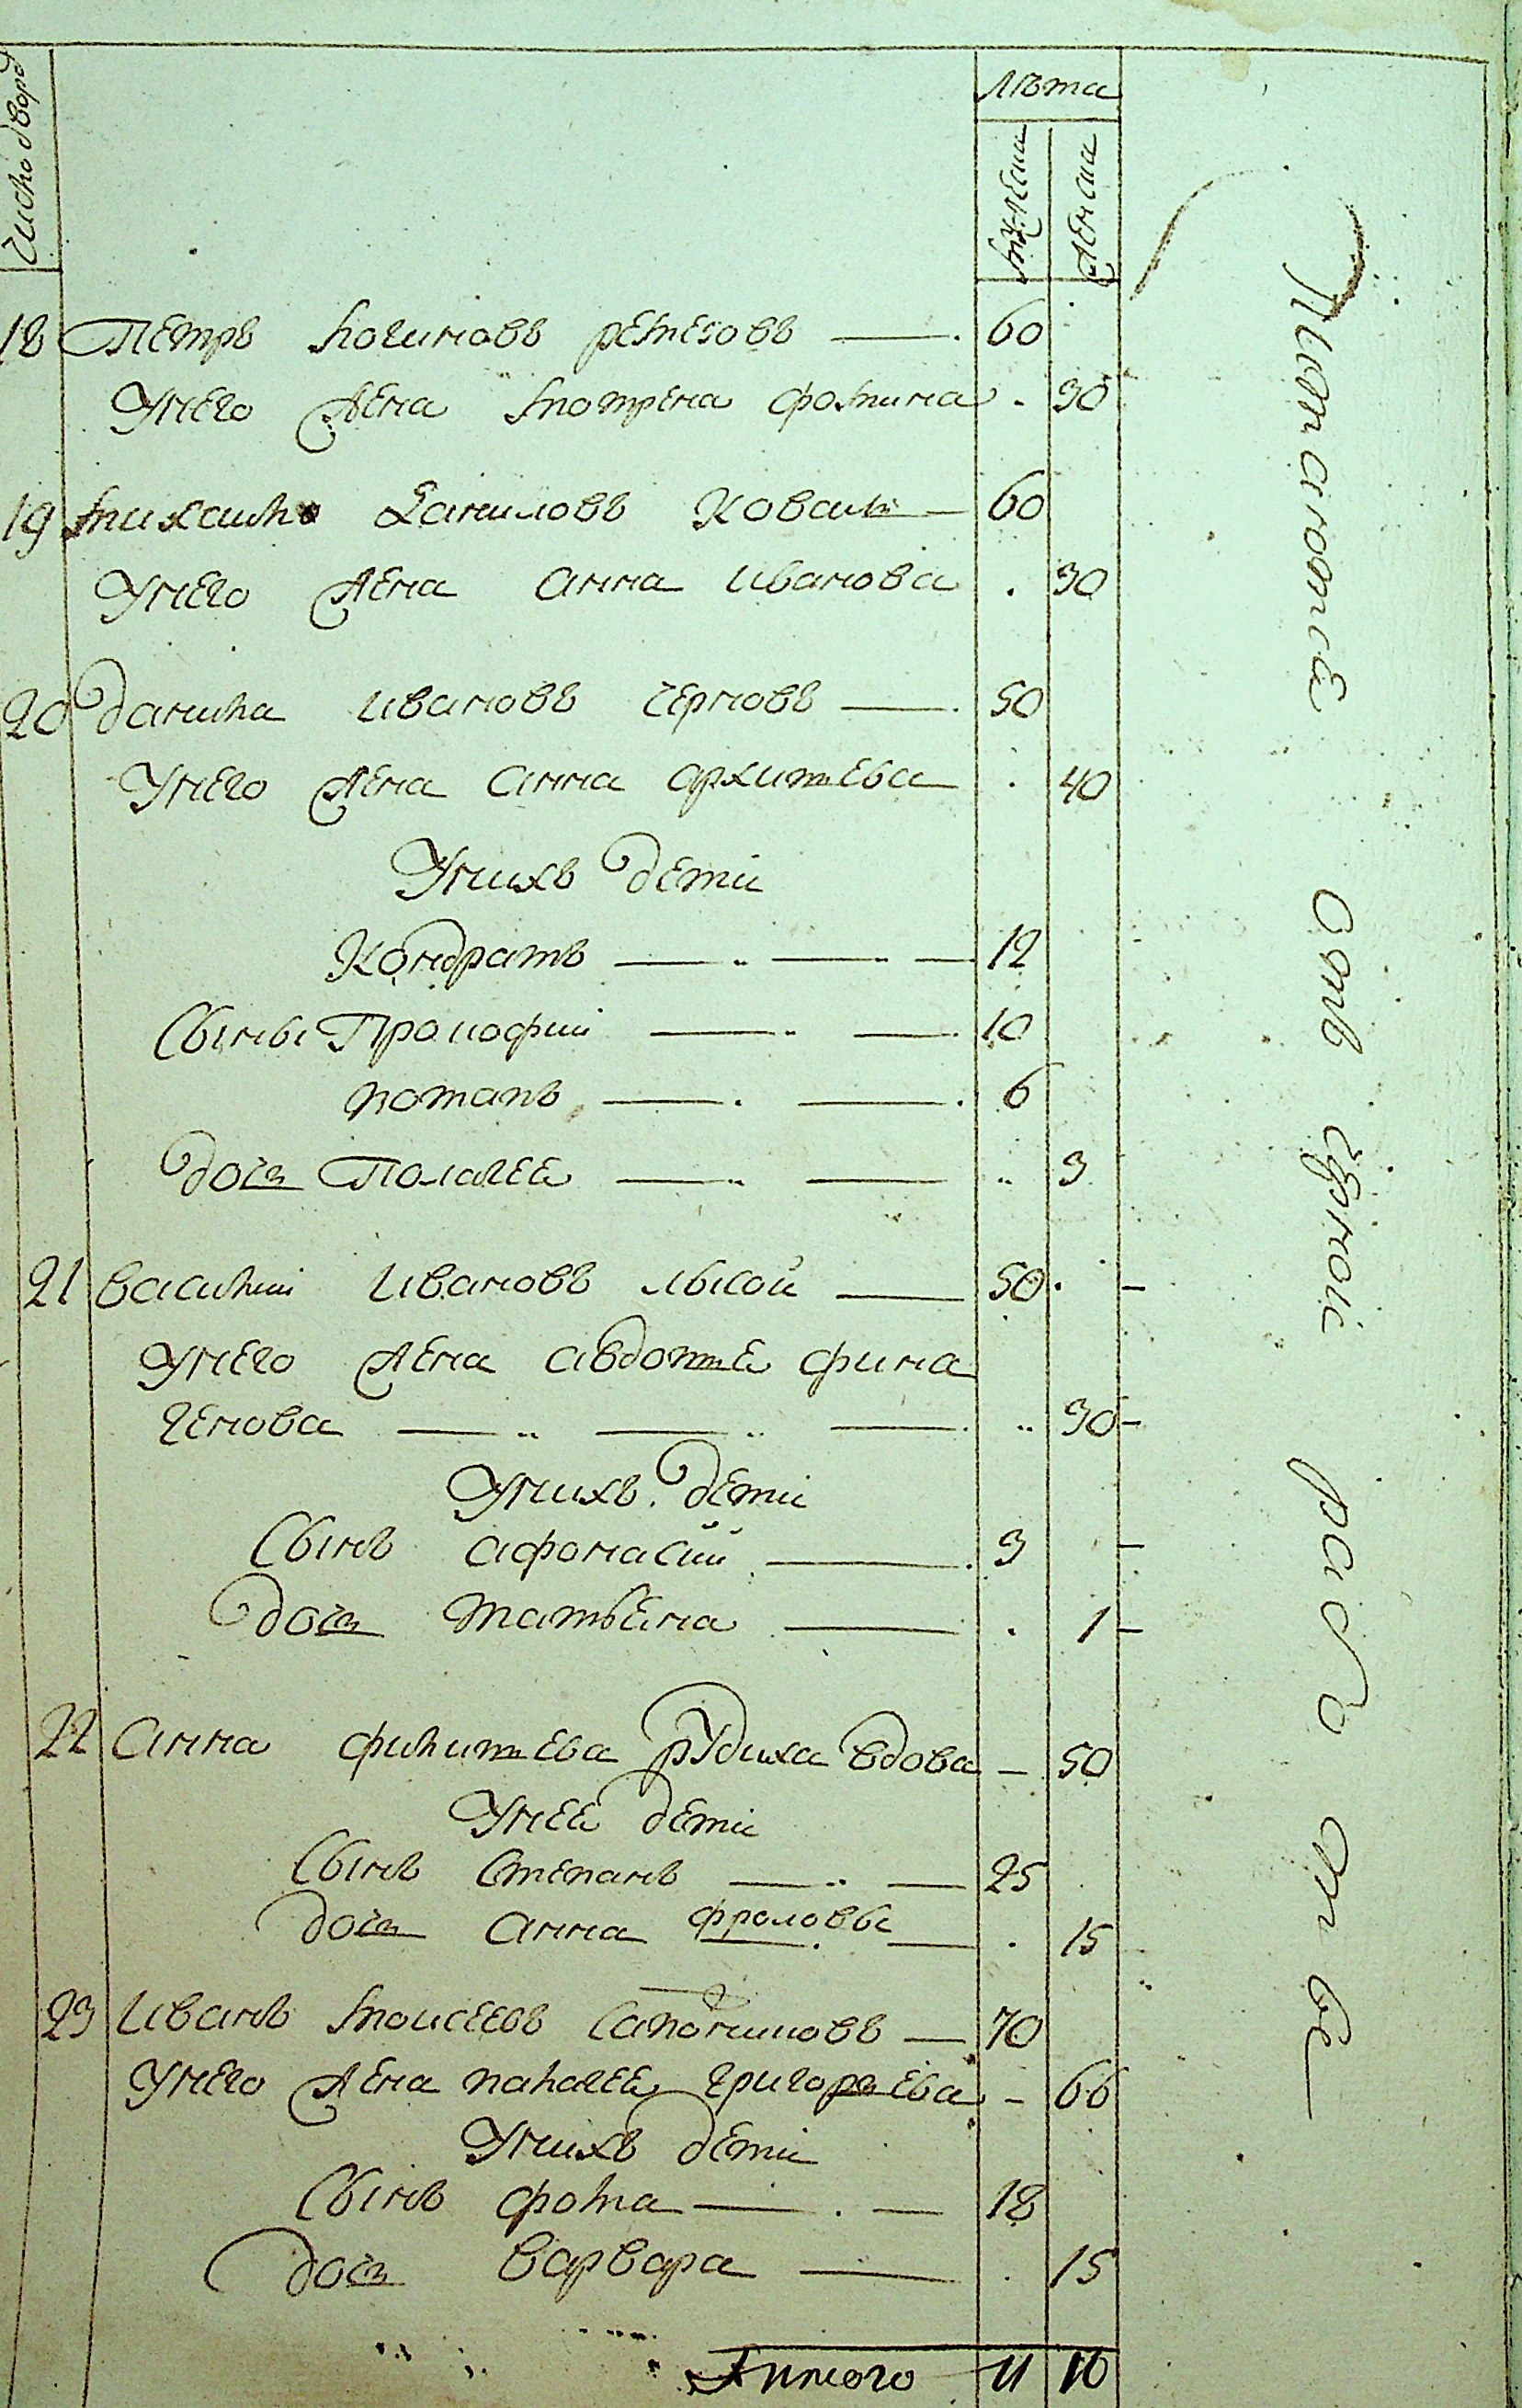 Число дворо
лѣта
мужеска
женска
18 Петръ логиновъ ремезовъ 60
Унего жена мотрена фомина 30
19 михайло Даниловъ Коваль 60
Унего жена анна иванова 30
20 данила ивановъ черновъ 50
Унего жена анна архипьева 40
Унихъ дети
Кондратъ 12
Сыны Прокофий 10
потапъ 6
дочь Полагея 3
21 василий ивановъ лысой 50
Унего жена авдотья фина
генова 30
Унихъ дети
Сынъ афонасий 3
дочь татьяна 1
22 анна филипьева рудиха вдова 50
Унее дети
Сынъ Степанъ 25
дочь анна фроловы 15
23 иванъ моисеевъ 70
Унего жена палагея григорьева 66
Унихъ дети
Сынъ фома 18
дочь варвара 15
Итого 11 10
отъ